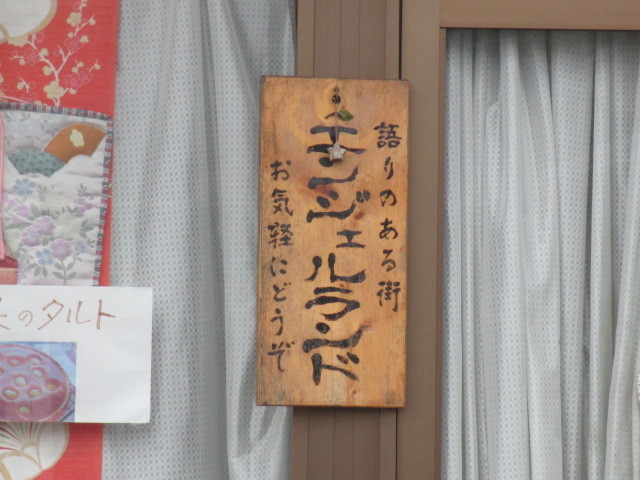 語りのある街
エンジェルランド
お気軽にどうぞ
のタルト